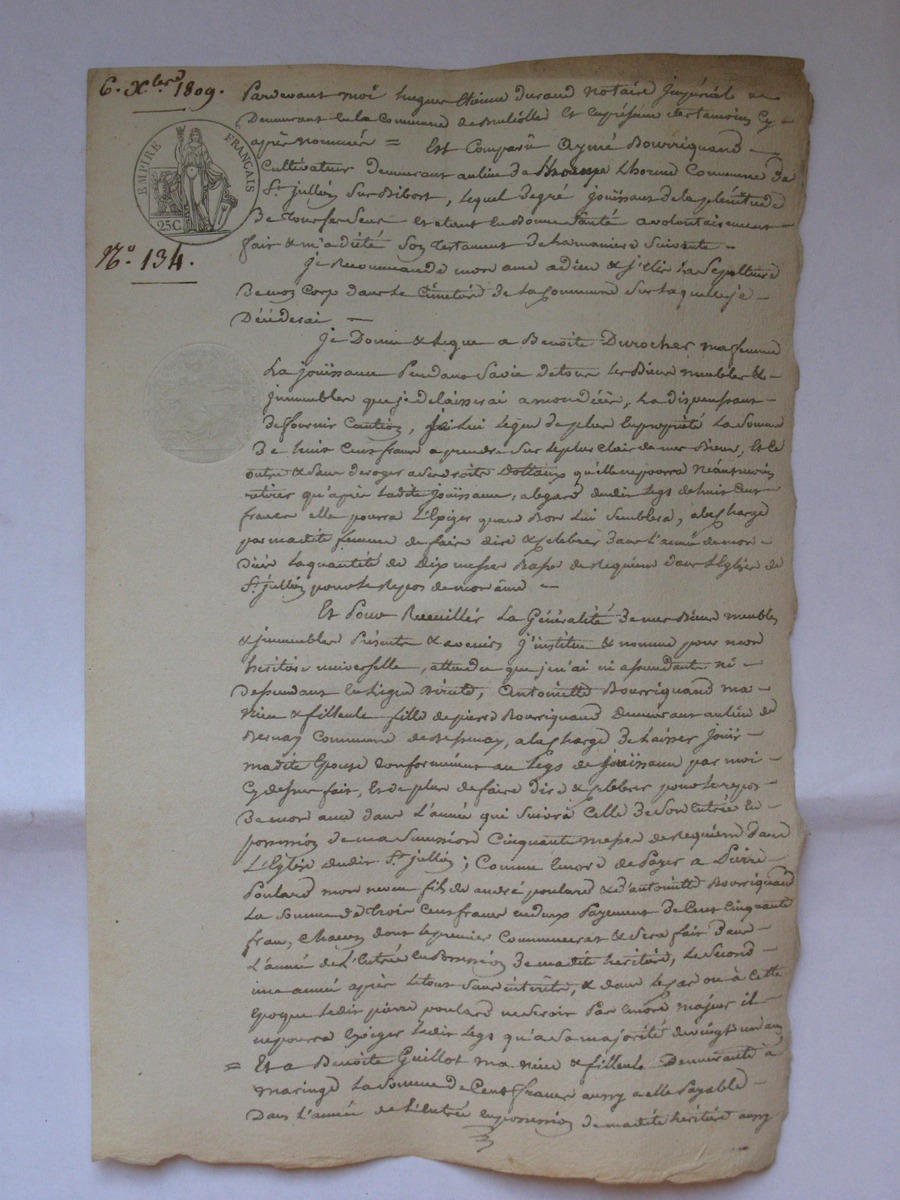 6. Xbre 1809.
EMPIRE FRANÇAIS
25C
No. 134.
Pardevant moi hugue Etienne durand notaire Jmpérial
Demeurant en la Commune de et En présence des temoins Cy-
après nommés = Est Comparû Aymé Bourriquand -
Cultivateur Demeurant au lieu de Lhorme Commune de
St. jullien Sur Bibost, lequel de gré jouissant de la plénitude
De tous ses Sens et etant en Bonne Santé a volontairement
fait & m'a dicté Son Testament de la maniere Suivante -
je Recommande mon ame a dieu & j'elis la Sepulture
De mon Corp dans Le Cimetiere de La Commune Sur laquelle je -
Décéderai -
je Donne & Legue a Benoite Durocher ma femme
La joüissance Pendant Sa vie de tous Les Biens meubles &
jmmeubles que je délaisserai a mon décès, La dispensant
de fournir Caution, je Lui Legue de plus En propriété La Somme
De huit Cent francs a prendre Sur le plus Clair de mes Biens, Et Ce
outre & Sans deroger a Ses droits Dottaux qu'elle ne pourra néanmoins
retirer qu'après Ladite joüissance, a l'egard dudit Legs de huit Cent
francs elle pourra L'Exiger quand Bon Lui Semblera, a la Charge
par madite femme de faire dire & Celebrer dans L'année de mon
décès La quantité de Dix messes Basses de Requiem dans L'Eglise de
St. jullien pour Le Repos de mon âme -
Et Pour Recueillir La Généralité De mes Biens meubles
& jmmeubles Présents & avenirs j'institue & nomme pour mon
héritière universelle, attendu que je n'ai ni assendants ni -
Dessendants En Ligne directe, Antoinette Bourriquand ma -
Niece & filleule fille de pierre Bourriquand Demeurant au lieu de
Bernay Commune de Bessenay, a la Charge De Laisser jouir
madite Epouse Conformément au Legs de joüissance par moi -
Cy dessus fait, Et de plus de faire dire & Celebrer pour Le repos
De mon ame dans L'année qui Suivra Celle de Son Entrée En
possession De ma Succession Cinquante messes de Requiem dans
L'Eglise dudit St. jullien; Comme Encore de Payer a Pierre
Poulard mon neveu fils de andré poulard & d'antoinette Bourriquand
La Somme de trois Cent francs en deux Payement de Cent Cinquante
francs Chacun dont le premier Commencera & Sera fait dans
L'année de L'Entrée En Possession De madite héritière, Le Second
une année après Le tout Sans intérêts, & dans le Cas ou à Cette
Epoque Ledit pierre poulard ne Seroit Pas Encore majeur il
ne pourra Exiger Ledit Legs qu'a Sa majorité de vingt un ans
= Et a Benoite Guillot ma niece & filleule Demeurante à
maringe La Somme de Cent francs aussy a elle Payable -
Dans L'année de L'Entrée en possession de madite héritière aussy